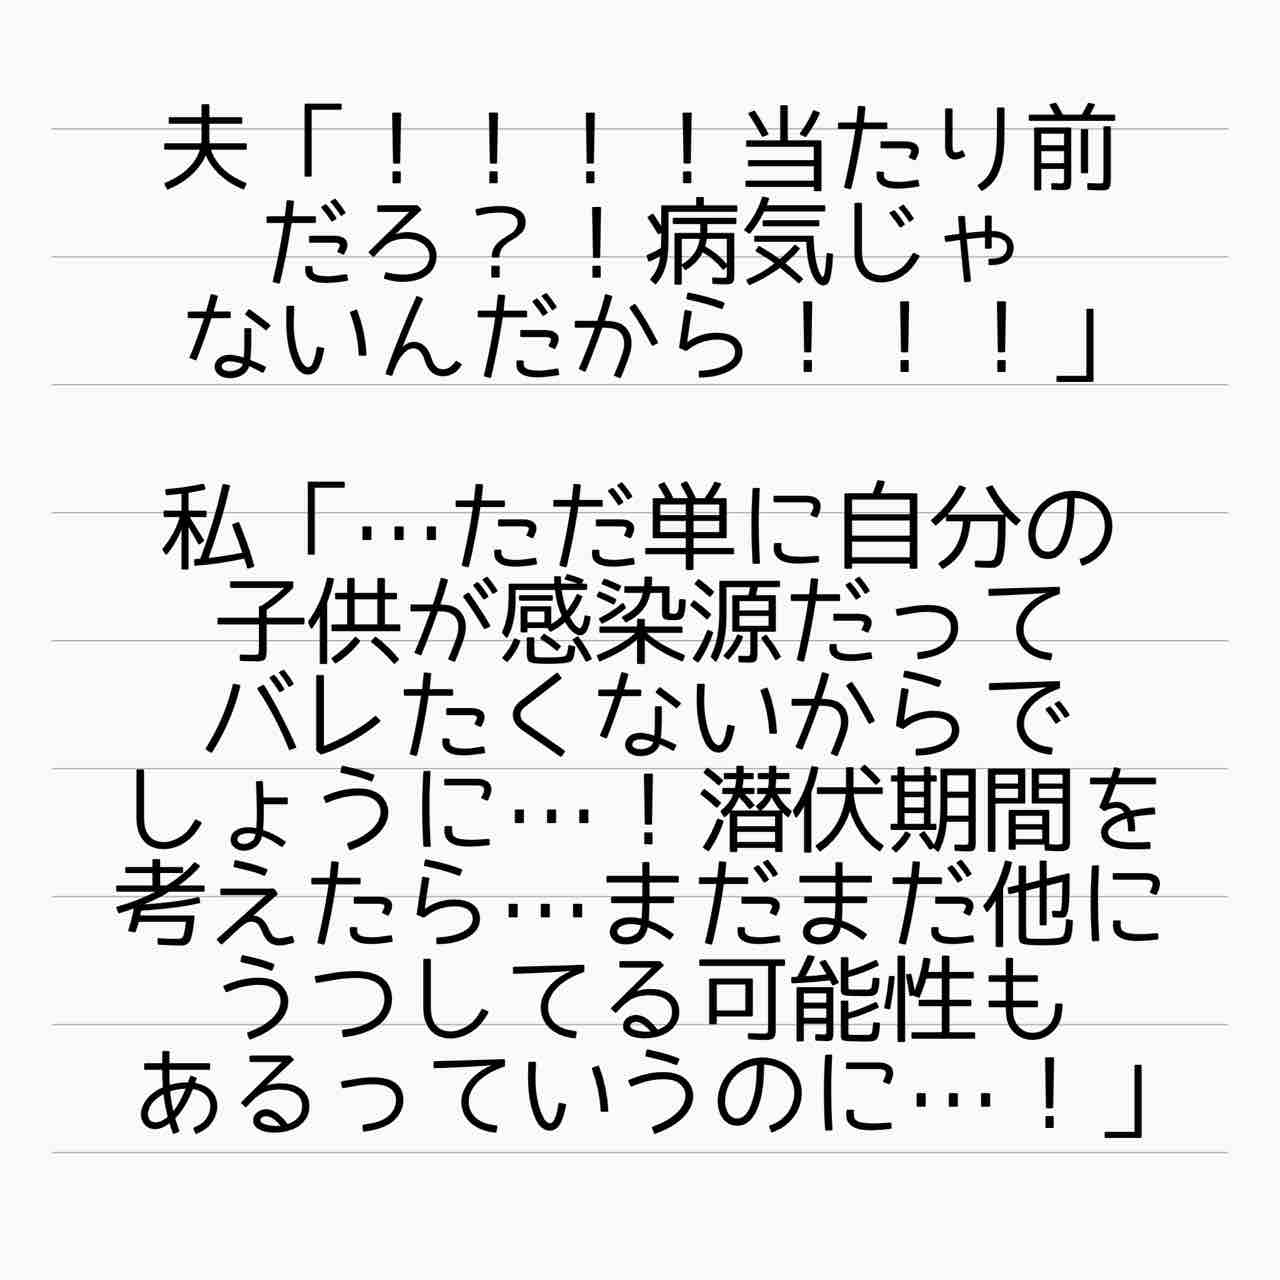 夫「！！！！当たり前
だろ？！病気じゃ
ないんだから！！！」
私「…ただ単に自分の
子供が感染源だって
バレたくないからで
しょうに…！潜伏期間を
考えたら…まだまだ他に
うつしてる可能性も
あるっていうのに…！」